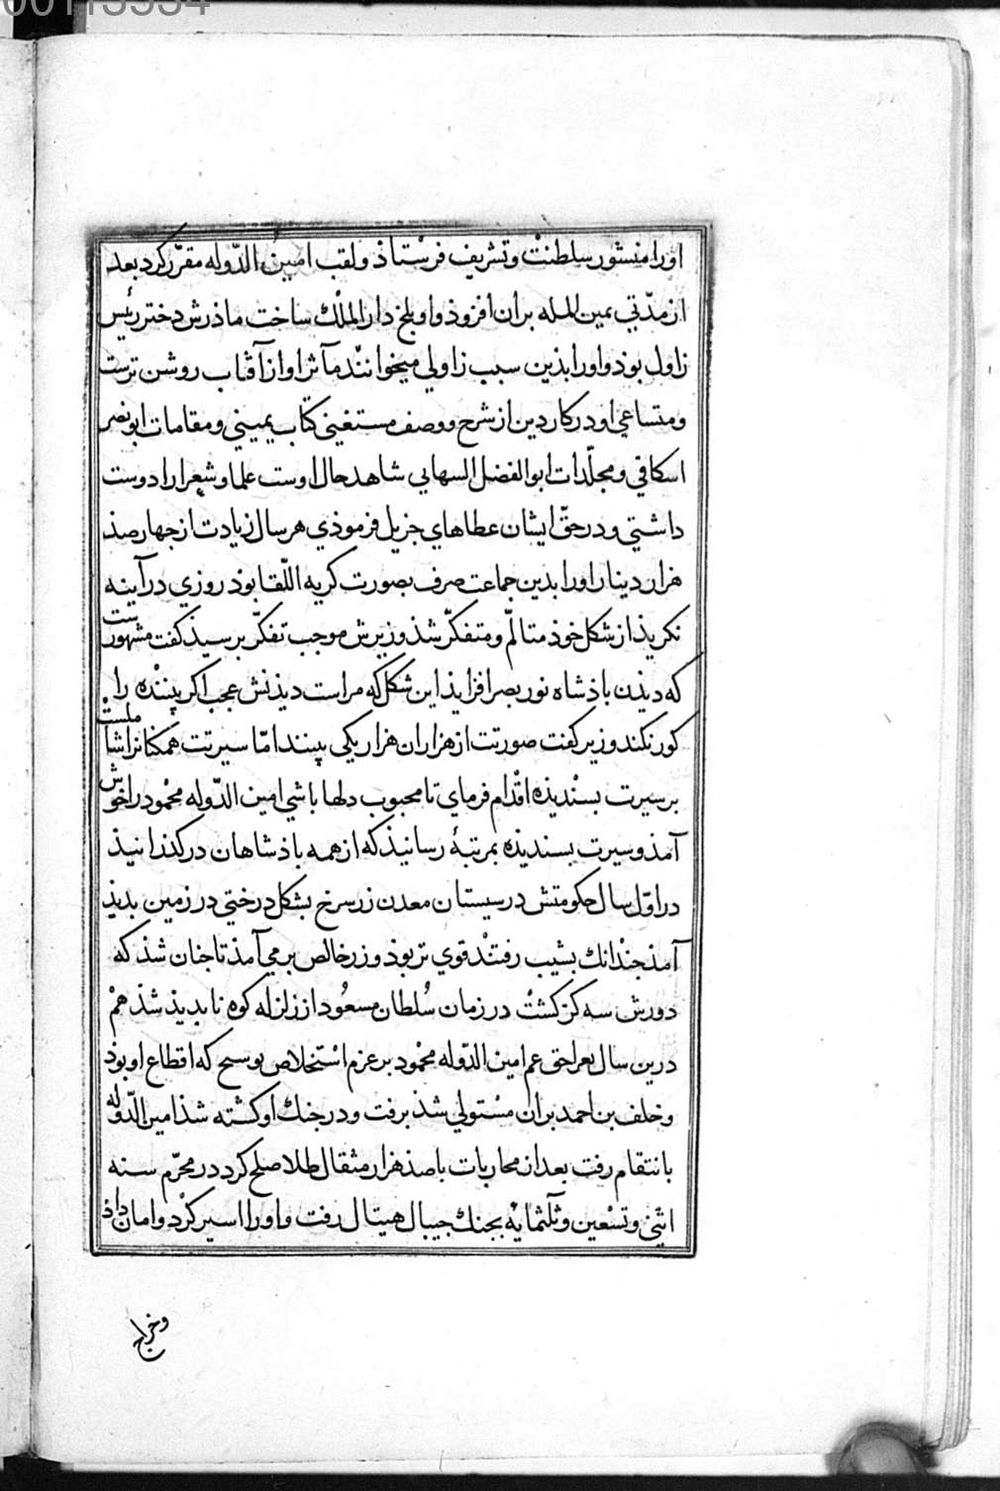 00113334
اورا منشور سلطنت و تشریف فرستاذ ولقب امین الدّوله مقرّر کرد بعد
از مدّتی یمین الملله بران افزوذ واو بلخ دار الملک ساخت ماذرش دختر رئیس
زاول بوذ واورا بذین سبب زاولی میخوانند مآثر او از آفتاب روشن ترست
ومساعی او در کار دین از شرح ووصف مستغنی کتاب یمینی ومقامات ابو نصر
اسکافی ومجلّدات ابو الفضل السهایی شاهد حال اوست علما وشعرا را دوست
داشتی ودر حقّ ایشان عطاهای جزیل فرموذی هر سال زیادت از جهار صذ
هزار دینار اورا بدین جماعت صرف بصورت کریه اللّقا بوذ روزی در آینه
نکریذ از شکل خوذ متألّم ومتفکّر شذ وزیرش موجب تفکّر برسیذ کفت مشهورست
که دیذن باذشاه نور بصر افزایذ این شکل که مراست دیذنش عجب اکر بیننده را
کور نکند وزیر کفت صورتت از هزاران هزار یکی بینند امّا سیرتت همکنانرا شاملست
بر سیرت بسندیذه اقدام فرمای تا محبوب دلها باشی امین الدّوله محمود را خوش
آمذ وسیرت بسندیذه بمرتبۀ رسانیذ که از همه باذشاهان در کذرانیذ
در اوّل سال حکومتش در سیستان معدن زر سرخ بشکل درختی در زمین بدیذ
آمذ جندانک بشیب رفتند قوی تر بوذ وزر خالص بر می آمذ تا جنان شذ که
دورش سه کز کشت در زمان سُلطان مسعُود از زلزله کوه نابدیذ شذ هم
درین سال بعراحق عم امین الدّوله محمود بر عزم استخلاص بوسیح که اقطاع او بوذ
وخلف بن احمد بران مستولی شذ برفت ودر جنک او کشته شذ امین الدّوله
بانتقام رفت بعد از محاربات باصذ هزار مثقال طلا صلح کرد در محرّم سنه
اثنی وتسعین وثلثمایه بجنک جیبال هیتال رفت واورا اسیر کرد وامان داذ
وخراج